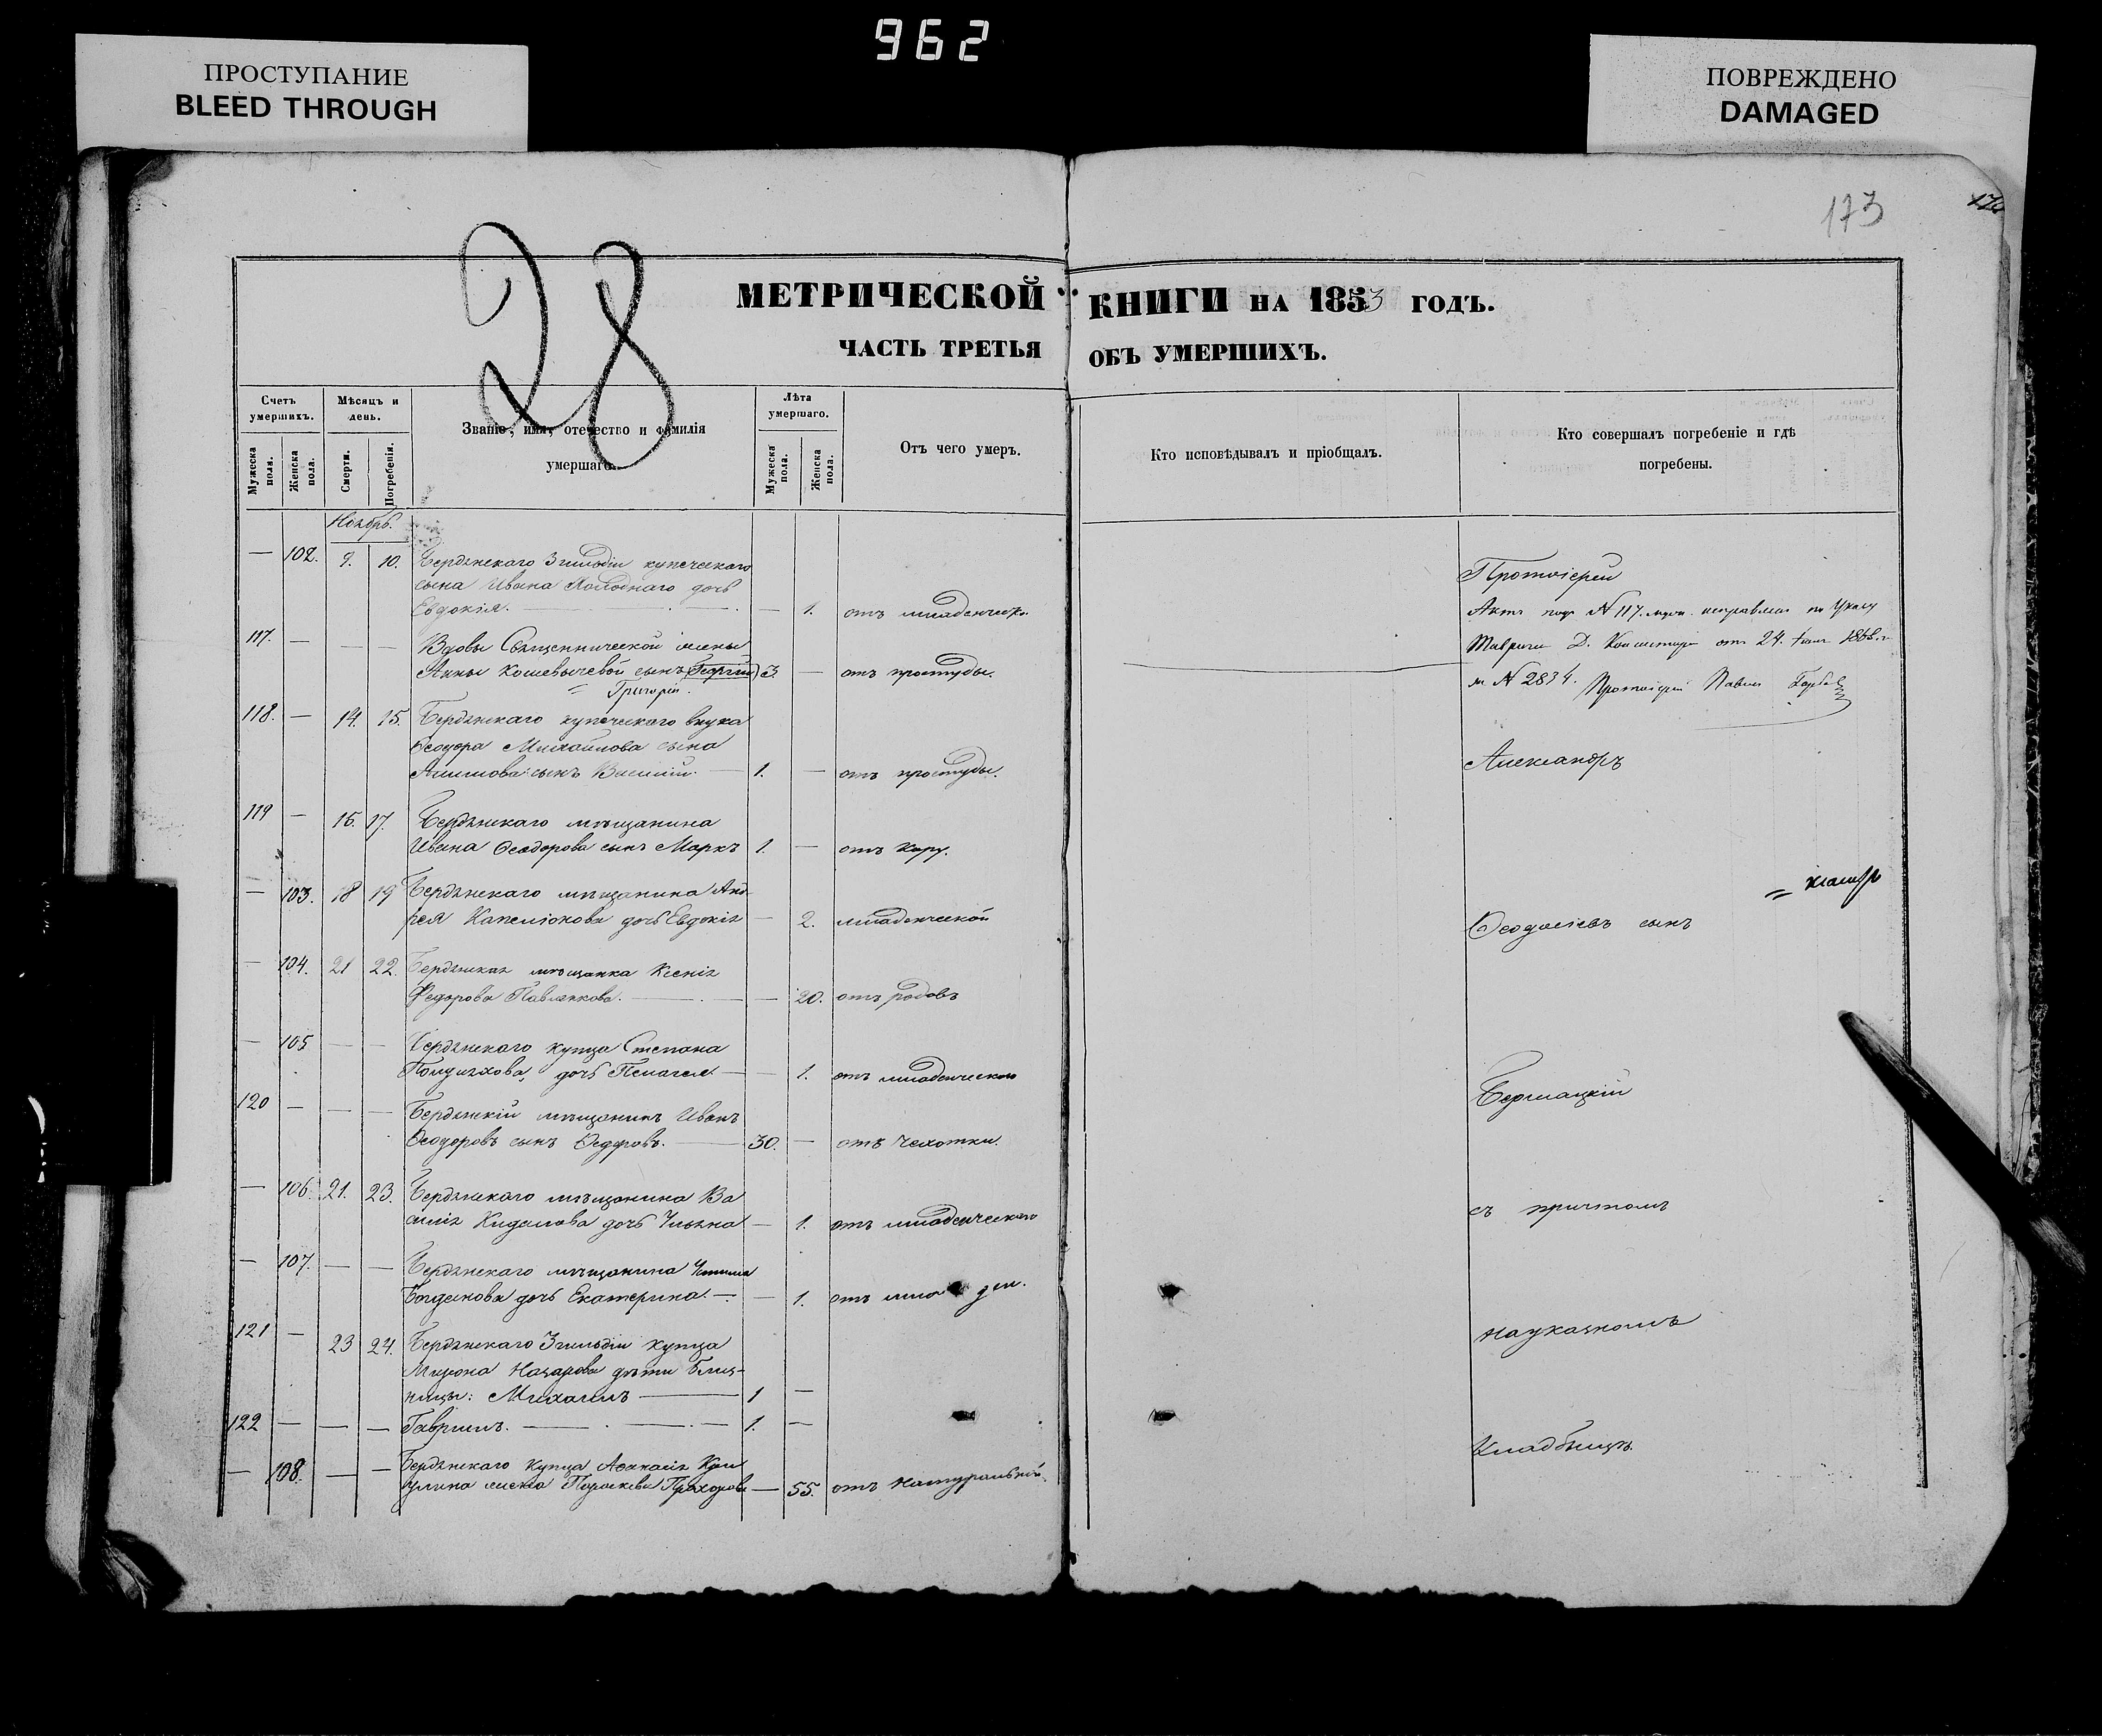 962
ПРОСТУПАНИЕ
BLEED THROUGH
ПОВРЕЖДЕНО
DAMAGED
173
28
МЕТРИЧЕСКОЙ КНИГИ НА 1853 ГОДЪ.
ЧАСТЬ ТРЕТЬЯ ОБЪ УМЕРШИХЪ.
Счетъ умершихъ.
Мужеска пола.
Женска пола.
Мѣсяцъ и день.
Смерти.
Погребенія.
Званіе, имя, отечество и фамилія
умершаго.
Лѣта умершаго.
Мужеска пола.
Женска пола.
Отъ чего умеръ.
Кто исповѣдывалъ и пріобщалъ.
Кто совершалъ погребеніе и гдѣ
погребены.
Ноябрь.
— 102. 9. 10. Бердянскаго 3 гильдіи купеческаго
сына Ивана Холоднаго дочь
Евдокія. — 1. отъ младенческ.
117. — — — Вдовы Священнической жены
Анны Кошевычевой сынъ (Георгій) 3. — отъ простуды.
= Григорій.
118. — 14. 15. Бердянскаго купеческаго внука
Ѳеодора Михайлова сына
сынъ Василій. — 1. — отъ простуды.
119 — 15. 17. Бердянскаго мѣщанина
Ивана Ѳеодорова сынъ Маркъ 1. — отъ кору.
— 103. 18 19 Бердянскаго мѣщанина Анд-
рея Капелюхова дочь Евдокія — 2. младенческой
— 104. 21 22. Бердянская мѣщанка Ксенія
Федорова Павленкова. — 20. отъ родовъ
— 105 — — Бердянскаго купца Степана
дочь Пелагея — 1. отъ младенческаго
120 — — — Бердянскій мѣщанинъ Иванъ
Ѳеодоровъ сынъ Ѳедоровъ. — 30. — отъ чехотки.
— 106. 21. 23. Бердянскаго мѣщанина Ва
силія Кидалова дочь Ульяна — 1. отъ младенческаго
— 107. — — Бердянскаго мѣщанина
Богданова дочь Екатерина. — 1. отъ мла ден.
121 — 23 24. Бердянскаго 3 гильдіи купца
Мирона Назарова дѣти Близ-
ницы: Михаилъ — 1 —
122 — — — Гавріилъ. — 1. —
— 108. — — Бердянскаго купца Аѳанасія
жена Параскева Прохорова — 55. отъ натуральной.
Протоіерей
Актъ подъ N 117. исправленъ по Указу
Тавричес. Д. Консисторіи отъ 24. 1868. г.
за N 2834. Протоіерей Павелъ
Александръ
Ѳеодосіевъ сынъ
Бершацкій
съ причтомъ
на указномъ
Кладбищѣ.